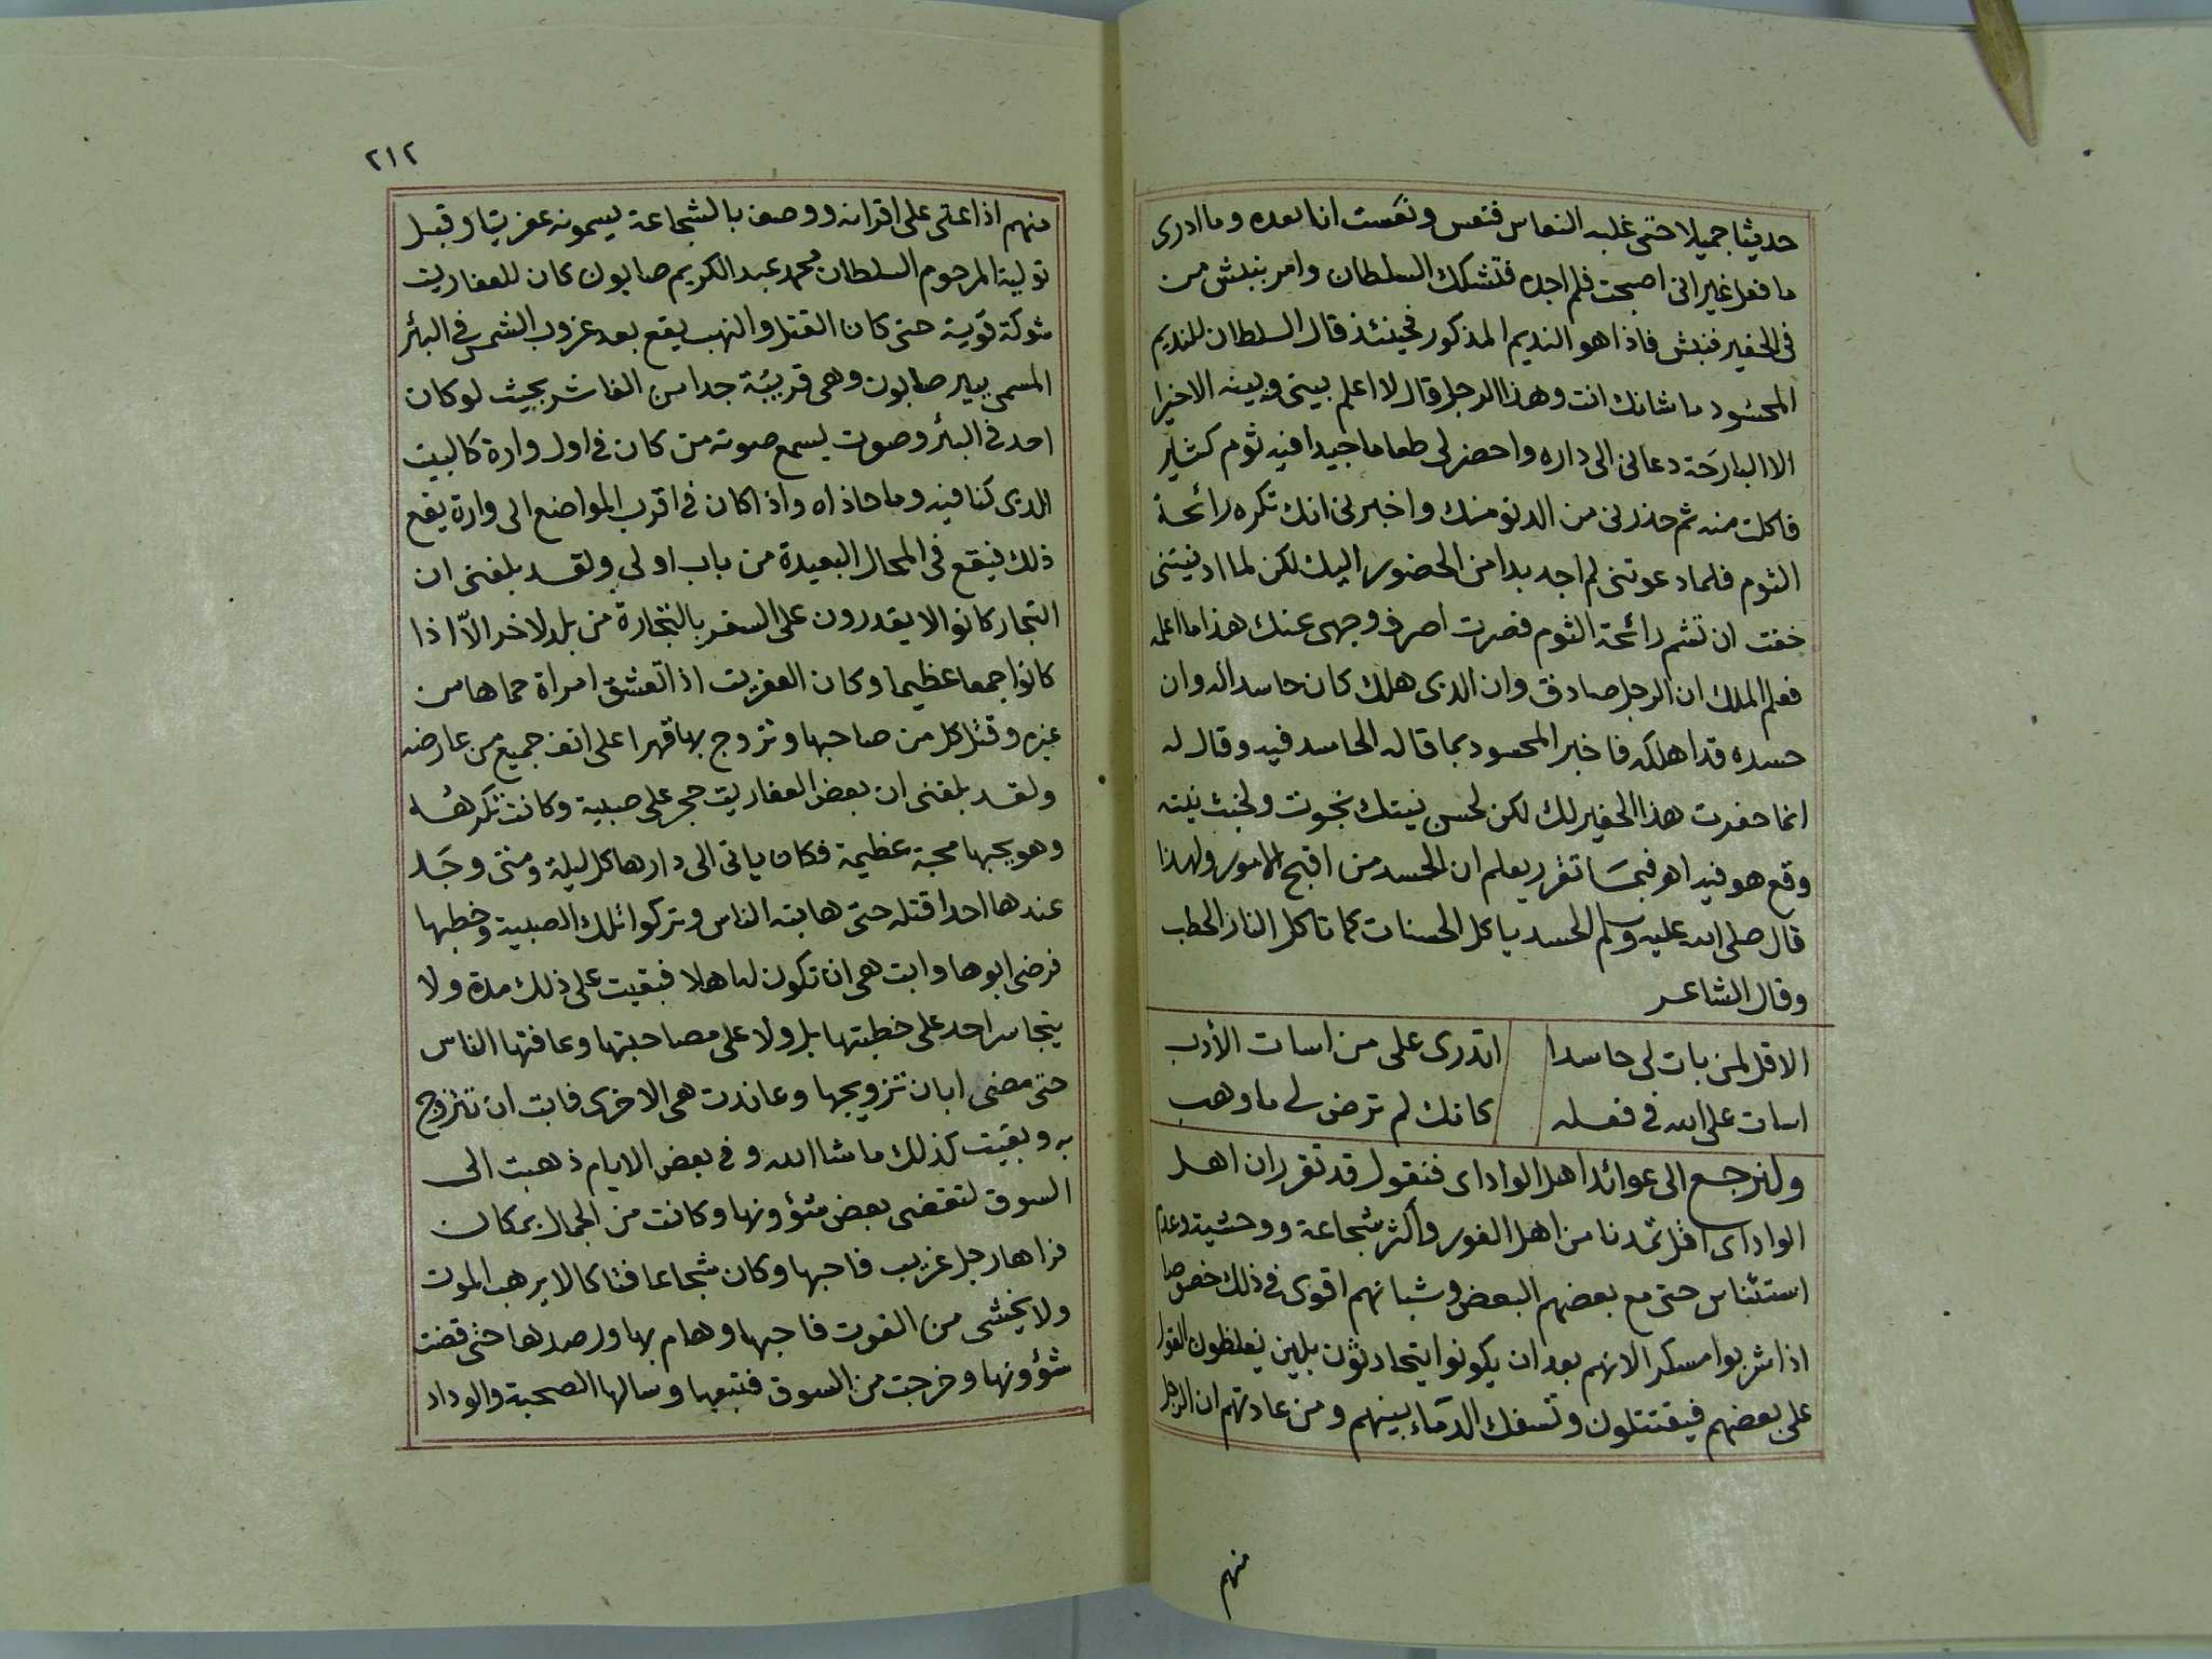 حديثا جميلا حتى غلبه النعاس فنعس ونعست انا بعده وما ادرى
ما فعل غير انى اصبحت فلم اجده فتشكك السلطان وامر بنبش من
فى الحفير فنبش فاذا هو النديم المذكور فحينئذ قال السلطان للنديم
المحسود ما شانك انت وهذا الرجل قال لا اعلم بينى وبينه الاخيرا
الا البارحة دعانى الى داره واحضر لى طعاما جيدا فيه ثوم كثير
فاكلت منه ثم حذرنى من الدنو منك واخبرنى انك تكره رائحة
الثوم فلما دعوتنى لم اجد بدا من الحضور اليك لكن لما ادنيتنى
خفت ان تشم رائحة الثوم فصرت اصرف وجهى عنك هذا ما اعلمه
فعلم الملك ان الرجل صادق وان الذى هلك كان حاسدا له وان
حسده قد اهلكه فاخبر المحسود بما قاله الحاسد فيه وقال له
انما حفرت هذا الحفير لك لكن لحسن نيتك نجوت ولخبث نيته
وقع هو فيه اهو فبما تقرر يعلم ان الحسد من اقبح الامور ولهذا
قال صلى الله عليه وسلم الحسد ياكل الحسنات كما تاكل النار الحطب
وقال الشاعر
الا قل لمن بات لى حاسدا اتدرى على من اسات الأدب
اسات على الله فى فعله كانك لم ترض لى ما وهب
ولنرجع الى عوائد اهل الواداى فنقول قد تقرر ان اهل
الواداى اقل تمدنا من اهل الفور واكثر شجاعة ووحشية وعدم
استئناس حتى مع بعضهم البعض وشبانهم اقوى فى ذلك خصوصا
اذا شربوا مسكرا لانهم بعد ان يكونوا يتحادثون بلين يغلظون القول
على بعضهم فيقتتلون وتسفك الدماء بينهم ومن عادتهم ان الرجل
منهم
٢١٢
منهم اذا اعتلى على اقرانه ووصف بالشجاعة يسمونه عفريتا وقبل
تولية المرحوم السلطان محمد عبد الكريم صابون كان للعفاريت
شوكة قوية حتى كان القتل والنهب يقع بعد غروب الشمس فى البئر
المسمى ببير صابون وهى قريبة جدا من الفاشر بحيث لو كان
احد فى البئر وصوت يسمع صوته من كان فى اول وارة كالبيت
الذى كنا فيه وما حاذاه واذا كان فى اقرب المواضع الى وارة يقع
ذلك فيقع فى المحال البعيدة من باب اولى ولقد بلغنى ان
التجار كانوا لا يقدرون على السفر بالتجارة من بلد لاخر الا اذا
كانوا جمعا عظيما وكان العفريت اذا تعشق امراة حماها من
غيره وقتل كل من صاحبها وتزوج بها قهرا على انف جميع من عارضه
ولقد بلغنى ان بعض العفاريت حجر على صبية وكانت تكرهه
وهو يحبها محبة عظيمة فكان ياتى الى دارها كل ليلة ومتى وجد
عندها احدا قتله حتى هابته الناس وتركوا تلك الصبية وخطبها
فرضى ابوها وابت هى ان تكون له اهلا فبقيت على ذلك مدة ولا
يتجاسر احد على خطبتها بل ولا على مصاحبتها وعافتها الناس
حتى مضى ابان تزويجها وعاندت هى الاخرى فابت ان تتزوج
به وبقيت كذلك ما شا الله وفى بعض الايام ذهبت الى
السوق لتقضى بعض شؤونها وكانت من الجمال بمكان
فراها رجل غريب فاحبها وكان شجاعا فتاكا لا يرهب الموت
ولا يخشى من الفوت فاحبها وهام بها ورصدها حتى قضت
شؤونها وخرجت من السوق فتبعها وسالها الصحبة والوداد